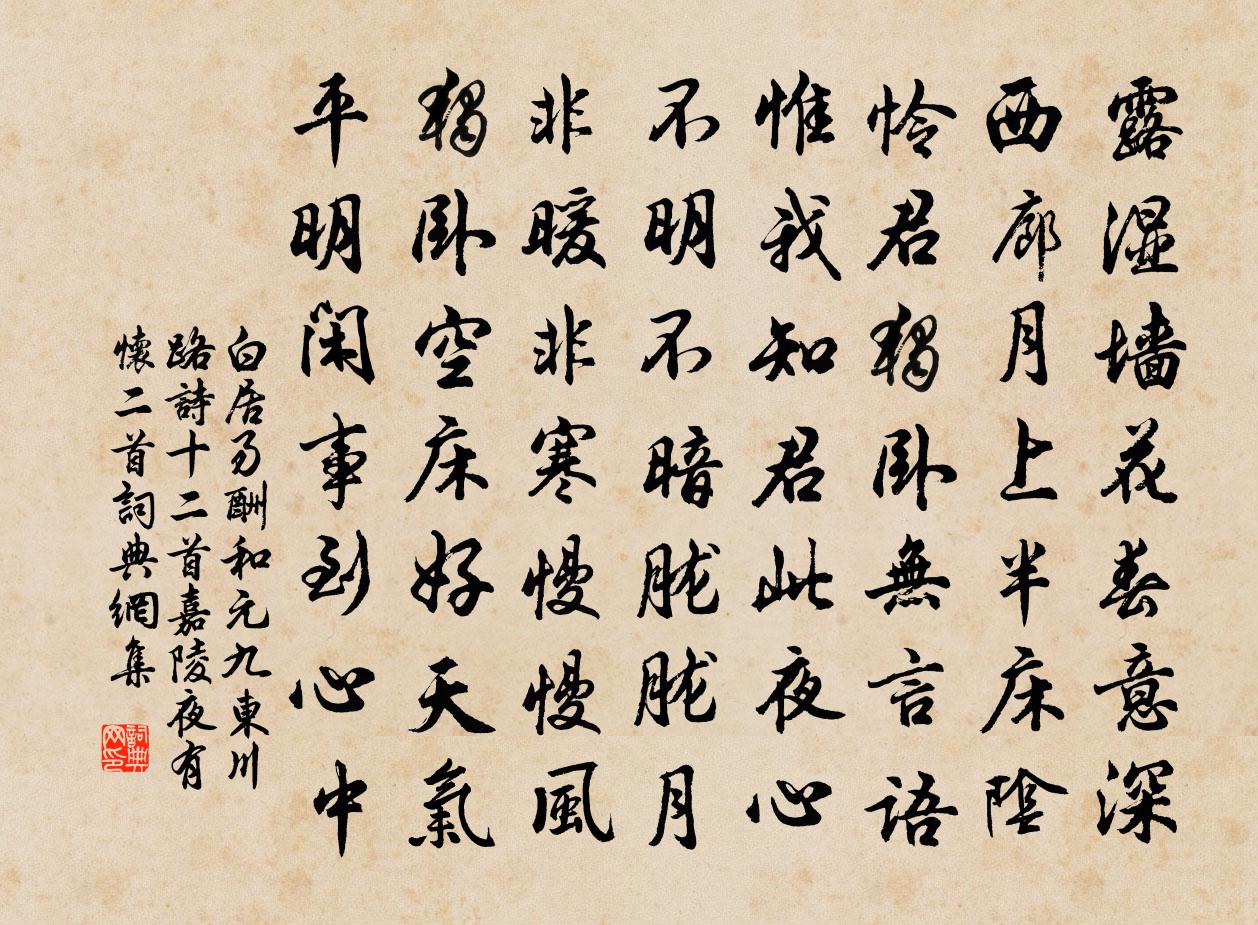 露湿墙花春意深
西廊月上半床陰
怜君獨卧無言語
惟我知君此夜心
不明不暗朧朧月
非暖非寒慢慢風
獨卧空床好天氣
平明閑事到心中
白居易酬和元九東川
路詩十二首嘉陵夜有
懷二首詞典網集
詞典
网印